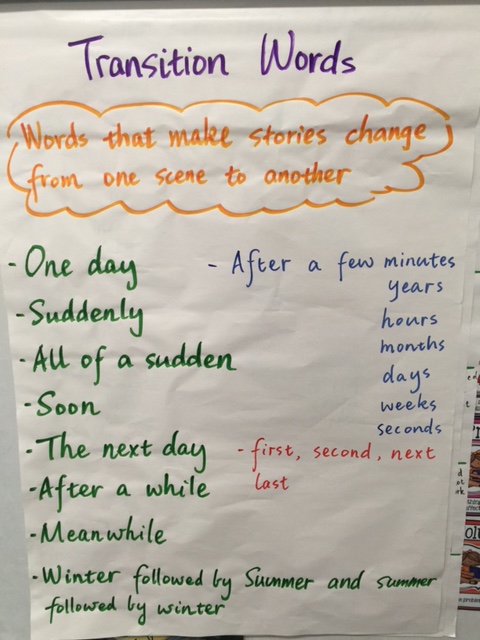 Transition Words
Words that make stories change
from one scene to another
- One day
- Suddenly
- All of a sudden
- Soon
- The next day
- After a while
- Meanwhile
- Winter followed by Summer and summer
followed by winter
- After a few minutes
years
hours
months
days
weeks
seconds
- first, second, next
last